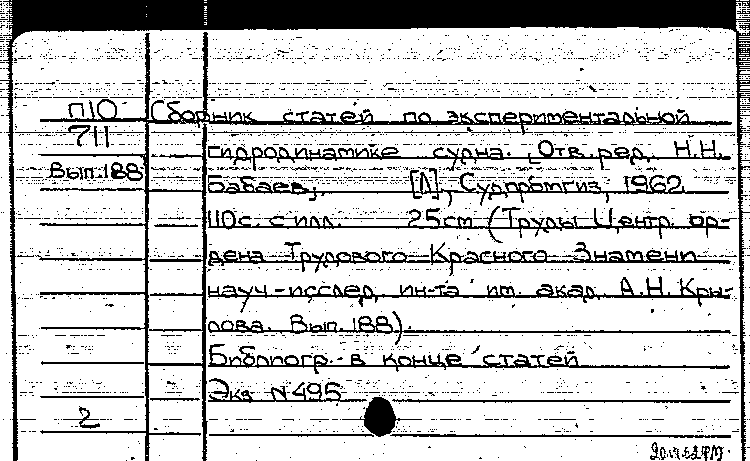 П10 Сборник статей по экспериментальной
711
гидродинамике судна. [Отв. ред. Н.Н.
Вып.188
Бабаев]. [Л], Судпромгиз, 1962
110с. с илл. 25cm (Труды Центр. ор-
дена Трудового Красного Знамени
науч-исслед. ин-та им. акад. А.Н. Кры-
лова. Вып. 188).
Библиогр. в конце статей
Экз N495
2